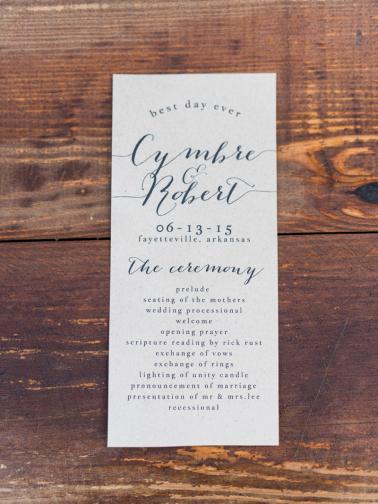 best day ever
Cymbre
&
Robert
06-13-15
fayetteville, arkansas
the ceremony
prelude
seating of the mothers
wedding processional
welcome
opening prayer
scripture reading by rick rust
exchange of vows
exchange of rings
lighting of unity candle
pronouncement of marriage
presentation of mr & mrs.lee
recessional